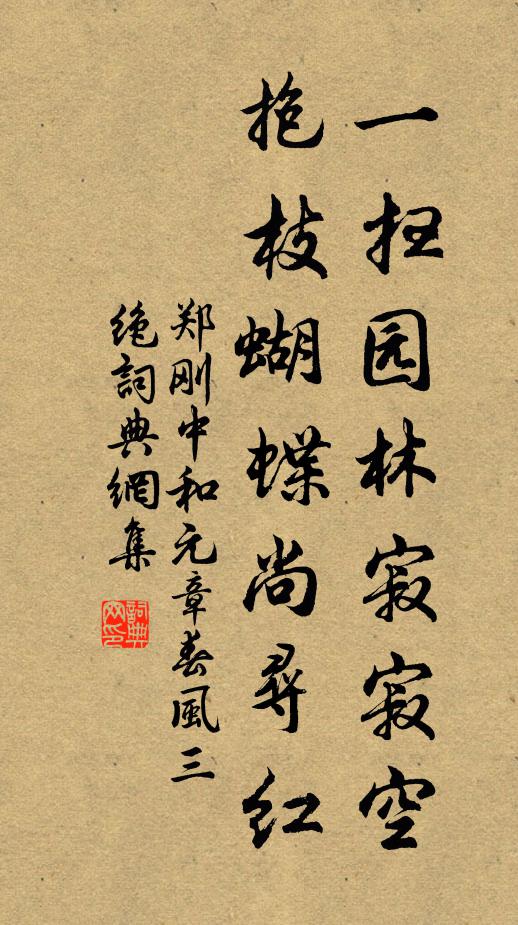 一扫园林寂寂空
抱枝蝴蝶尚寻红
郑刚中和元章春風三
绝詞典網集
詞典
网印